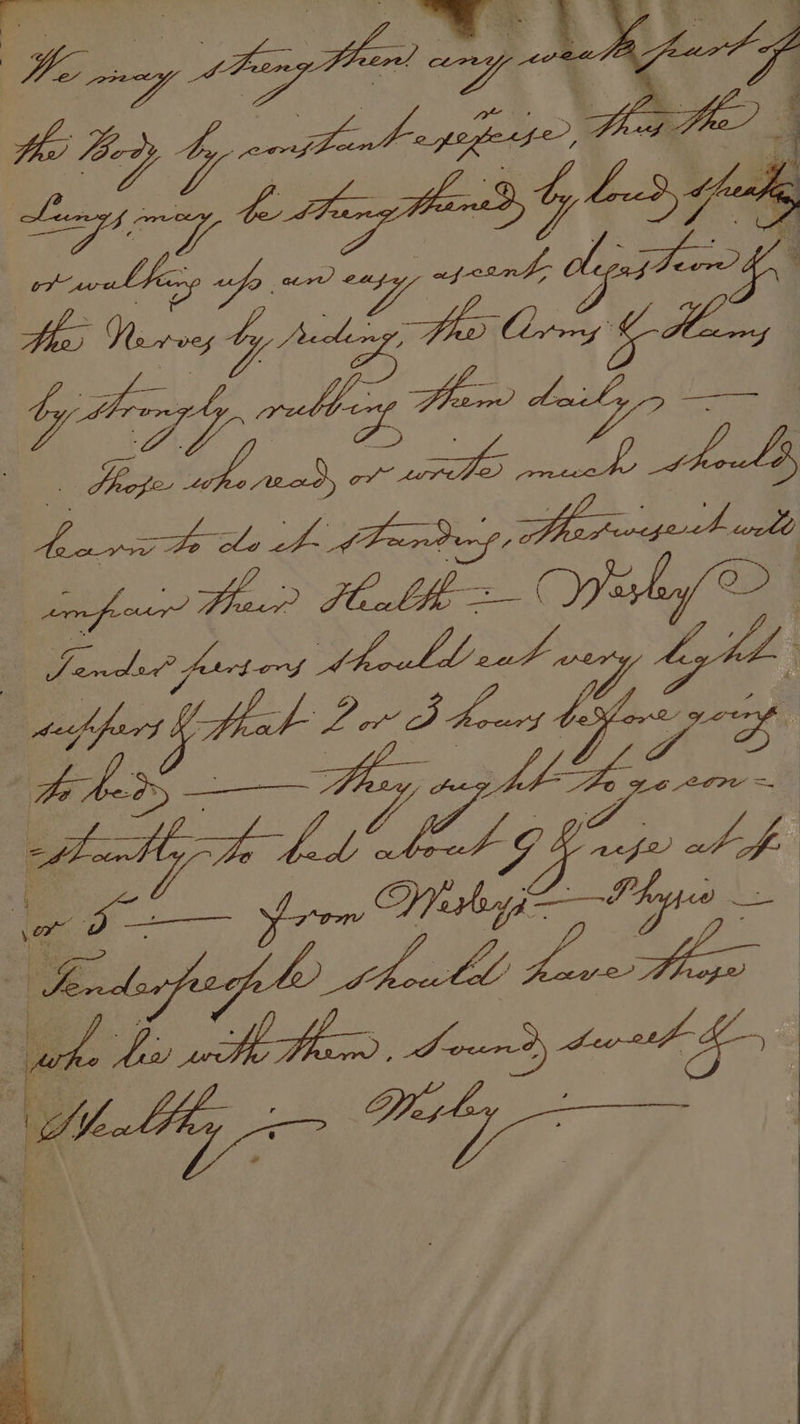 We may strengthen any weak part of
the Body by constant exercise, thus the
Lungs may be strengthened by loud speaking
or walking up an easy ascent, digestion &
the Nerves by riding, the Arms & Hams
by strongly rubbing them daily —
Those who read or write much should
learn to do it standing, otherwise it will
impair their Health — Wesley
Tender persons should eat very light
suppers & that 2 or 3 hours before going
to bed — they ought to go con=
=stantly to bed about 9 & rise at 4
or 5 — From Wesleys — Physic —
Tender people should have those
who lie with them, sound, sweet &
Healthy — Wesley —